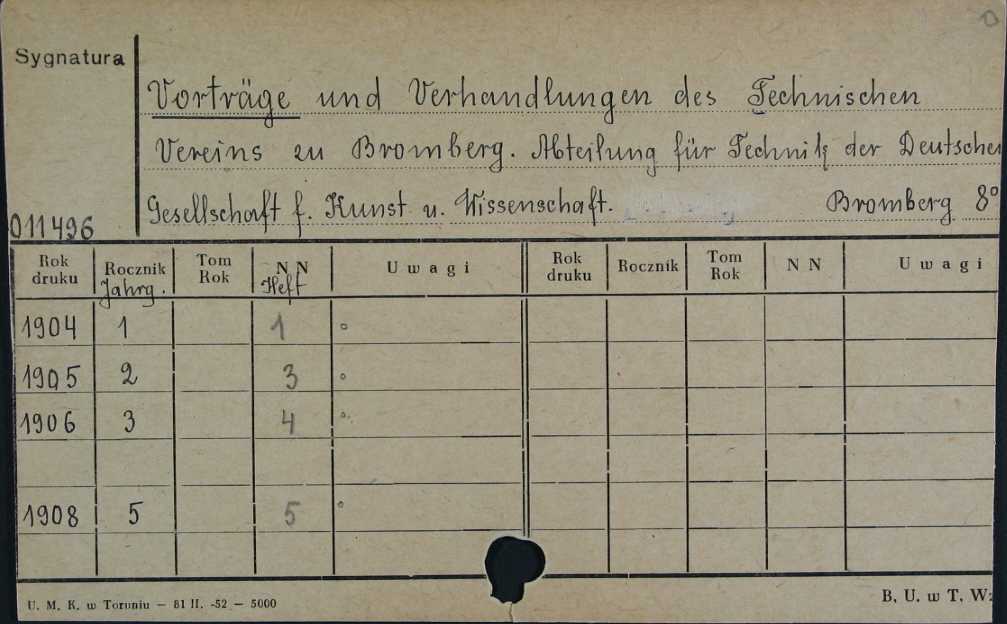 Sygnatura
Vorträge und Verhandlungen des Technischen
Vereins zu Bromberg. Abteilung für Technik der Deutschen
Gesellschaft f. Kunst u. Wissenschaft. Bromberg 8°
011496
Rok druku Rocznik Tom Rok N N Uwagi Rok druku Rocznik Tom Rok N N Uwagi
Jahrg. Heft
1904 1 1
1905 2 3
1906 3 4
1908 5 5
U. M. K. w Toruniu — 81 II. -52 — 5000
B. U. w T. W: